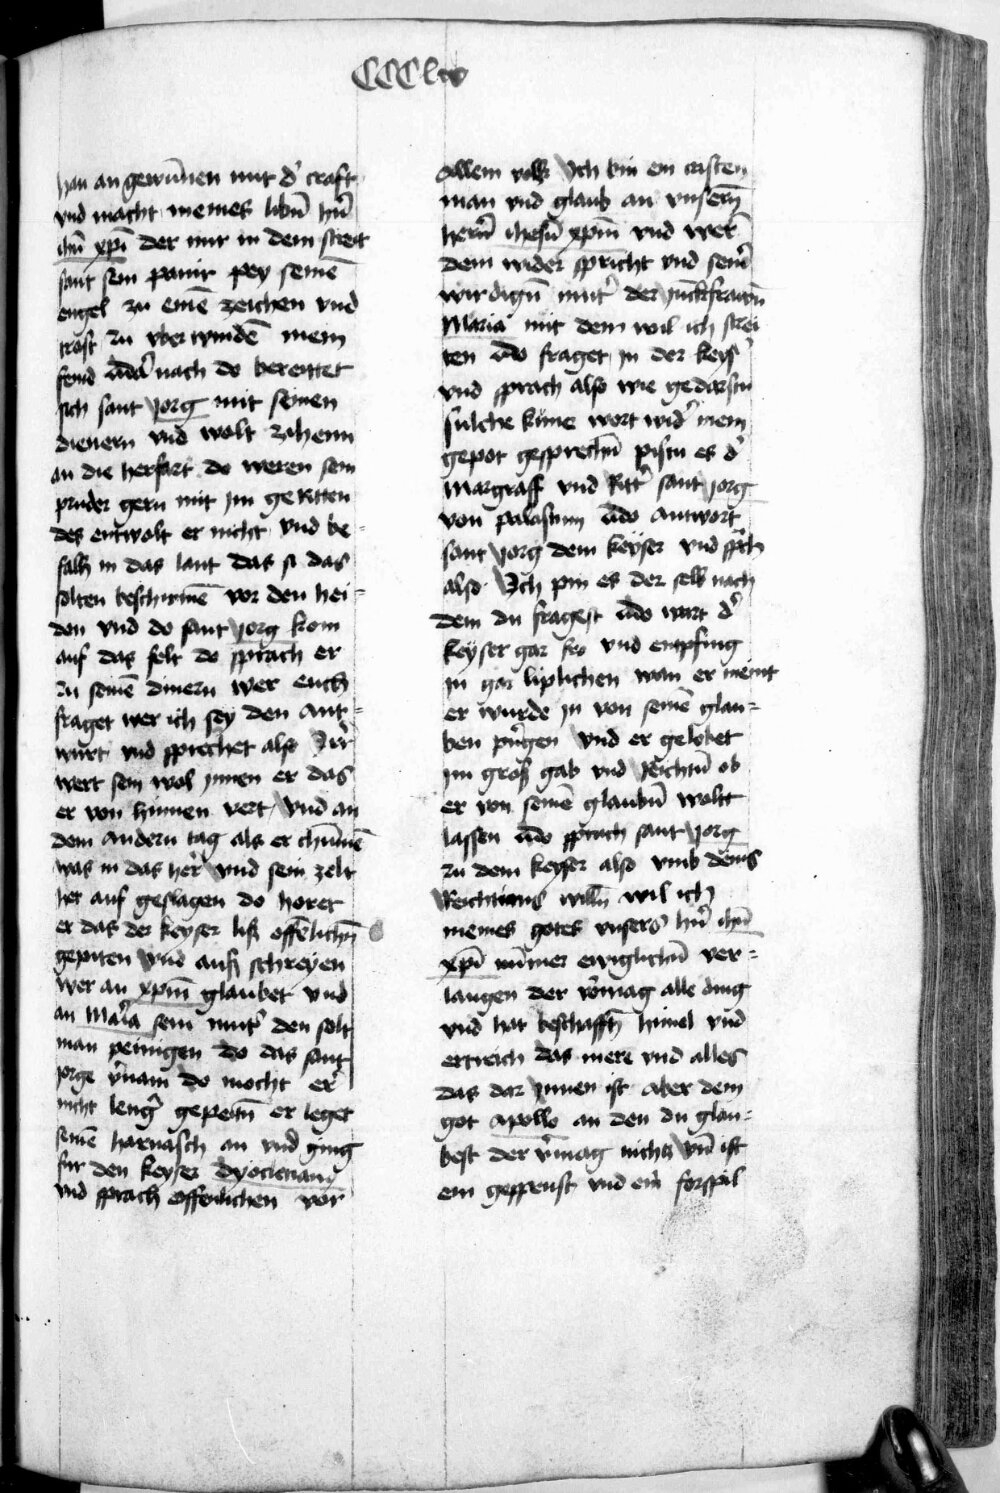 CCClv
han an gewūnen mit d̕ craft
vnd macht meines libn̄ hn̄
ihū xp̄i der mir in dem streit
sant sein panir pey seinē
engel zu einē zeichen vnd
trost zu vber windē mein
feind Vnd nach do bereitet
sich sant Jorg mit seinen
dienern vnd wolt zihenn
an die herfart do weren sein
pruder gern mit im geritten
des entwolt er nicht vnd be-
falh in das lant das si das
solten beschirmē vor den hei-
den vnd do sant Jorg kom
auf das felt do sprach er
zu seinē dinern wer euch
fraget wer ich sey den ant-
wurt vnd sprechet also Irr
wert sein wol Innen er das
er von hinnen vert Vnd an
dem andern tag als er chūmē
was in das her Vnd sein zelt
het auf geslagen do horet
er das der keyser liſ offēlichn̄
gepiten Vnd aufſ schreyen
wer an xpm̄ glaubet vnd
an Maria sein mut̕ den solt
man peinigen do das sant
jorge v̕nam do mocht er
nicht leng̕ gepeitn̄ er leget
seinē harnasch an vnd ging
fur den keyser dyoclecianū
vnd sprach offenlichen vor
Allem volk Ich bin ein cristen
man vnd glaub an vnsern̄
hern̄ ihesū xpm̄ vnd wer
dem wider spricht vnd sein̄
wirdign̄ mut̕ der Junckfrawn̄
Maria mit dem wil ich strei
ten Vdo fraget in der keys̕
vnd sprach also wie gedarstu
sulche küne wort wid̕ mein
gepot gesprechn̄ pistu es d̕
Margraff vnd Ritt̕ sant Jorg
von palastinn Vdo antwort
sant Jorg dem keyser vnd sp̄ch
also Ich pin es der selb nach
dem du fragest Vdo wart d̕
keyser gar fro vnd empfing
in gar liplichen wan er meint
er wurde in von seinē glau-
ben pringen Vnd er gelobet
im groſ gab vnd Reichtū ob
er von seinē glaubn̄ wolt
lassen Vdo sprach sant Jorg
zu dem keyser also vmb deins
Reichtums willn̄ wil ich
meines gotes vnsers hn̄ ihū
xp̄i nūmer ewiglichn̄ ver-
laugen der v̕mag alle ding
vnd hat beschaffn̄ himel vnd
ertreich das mere vnd alles
das dar Innen ist aber dem
got Apollo an den du glau-
best der v̕mag nichtz Vn̄ ist
ein gespenst vnd ein̄ forspil